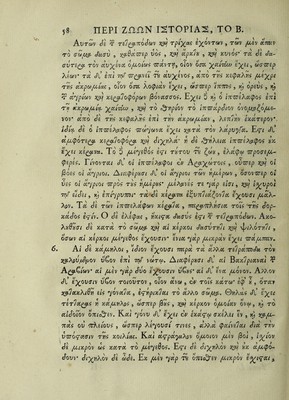 58 ΠΕΡΙ ΖΩΩΝ ΙΣΤΟΡΙΑΣ, ΤΟ Β.
Αὐτῶν δὲ τῶν τετραπόδων καὶ τρίχας ἐχόντων, τῶν μὲν ἅπαν
τὸ σῶμα δασὺ, καθάπερ ὑὸς, καὶ ἄρκτου, καὶ κυνός· τὰ δὲ δα-
σύτερα τὸν αὐχένα ὁμοίως πάντῃ, οἷον ὅσα χαίτην ἔχει, ὥσπερ
λέων· τὰ δ' ἐπὶ τῷ πρανεῖ τοῦ αὐχένος, ἀπὸ τῆς κεφαλῆς μέχρι
τῆς ἀκρωμίας, οἷον ὅσα λοφιὰν ἔχει, ὥσπερ ἵππος, καὶ ὀρεὺς, καὶ
τῶν ἀγρίων καὶ κερατοφόρων βόνασσος. Ἔχει δὲ καὶ ὁ ἱππέλαφος ἐπὶ
τῇ ἀκρωμίᾳ χαίτην, καὶ τὸ θηρίον τὸ ἱππάρδιον ὀνομαζόμε-
νον· ἀπὸ δὲ τῆς κεφαλῆς ἐπὶ τὴν ἀκρωμίαν, λεπτὴν ἑκάτερον·
ἰδίᾳ δὲ ὁ ἱππέλαφος πώγωνα ἔχει κατὰ τὸν λάρυγγα. Ἔστι δ'
ἀμφότερα κερατοφόρα καὶ διχηλά· ἡ δὲ θήλεια ἱππέλαφος οὐκ
ἔχει κέρατα. Τὸ δὲ μέγεθός ἐστι τούτου τοῦ ζῴου, ἐλάφῳ προσεμ-
φερές. Γίνονται δ' οἱ ἱππέλαφοι ἐν Ἀραχώτοις, οὗπερ καὶ οἱ
βόες οἱ ἄγριοι. Διαφέρουσι δ' οἱ ἄγριοι τῶν ἡμέρων, ὅσονπερ οἱ
ὕες οἱ ἄγριοι πρὸς τοὺς ἡμέρους· μέλανές τε γάρ εἰσι, καὶ ἰσχυροὶ
τῷ εἴδει, καὶ ἐπίγρυποι· τὰ δὲ κέρατα ἐξυπτιάζοντα ἔχουσι μᾶλ-
λον. Τὰ δὲ τῶν ἱππελάφων κέρατα, παραπλήσια τοῖς τῆς δορ-
κάδος ἐστίν. Ὁ δὲ ἐλέφας, ἥκιστα δασύς ἐστι τῶν τετραπόδων. Ἀκο-
λουθοῦσι δὲ κατὰ τὸ σῶμα καὶ αἱ κέρκοι δασύτητι καὶ ψιλότητι,
ὅσων αἱ κέρκοι μέγεθος ἔχουσιν· ἔνια γὰρ μικρὰν ἔχει πάμπαν.
6. Αἱ δὲ κάμηλοι, ἴδιον ἔχουσι παρὰ τὰ ἄλλα τετράποδα τὸν
καλούμενον ὕβον ἐπὶ τῷ νώτῳ. Διαφέρουσι δ' αἱ Βακτριαναὶ τῶν
Ἀραβίων· αἱ μὲν γὰρ δύο ἔχουσιν ὕβους· αἱ δ' ἕνα μόνον. Ἄλλον
δ' ἔχουσιν ὕβον τοιοῦτον, οἷον ἄνω, ἐν τοῖς κάτω· ἐφ' οὗ, ὅταν
κατακλιθῇ εἰς γόνατα, ἐστήρικται τὸ ἄλλο σῶμα. Θηλὰς δ' ἔχει
τέτταρας ἡ κάμηλος, ὥσπερ βοῦς, καὶ κέρκον ὁμοίαν ὄνῳ, καὶ τὸ
αἰδοῖον ὄπισθεν. Καὶ γόνυ δ' ἔχει ἐν ἑκάστῳ σκέλει ἓν, καὶ καμ-
πὰς οὐ πλείους, ὥσπερ λέγουσί τινες, ἀλλὰ φαίνεται διὰ τὴν
ὑπόστασιν τῆς κοιλίας. Καὶ ἀστράγαλον ὅμοιον μὲν βοῒ, ἰσχνὸν
δὲ μικρὸν ὡς κατὰ τὸ μέγεθος. Ἔστι δὲ διχηλὸν καὶ οὐκ ἀμφό-
δουν· διχηλὸν δὲ ὧδε. Ἐκ μὲν γὰρ τοῦ ὄπισθεν μικρὸν ἔσχισται,